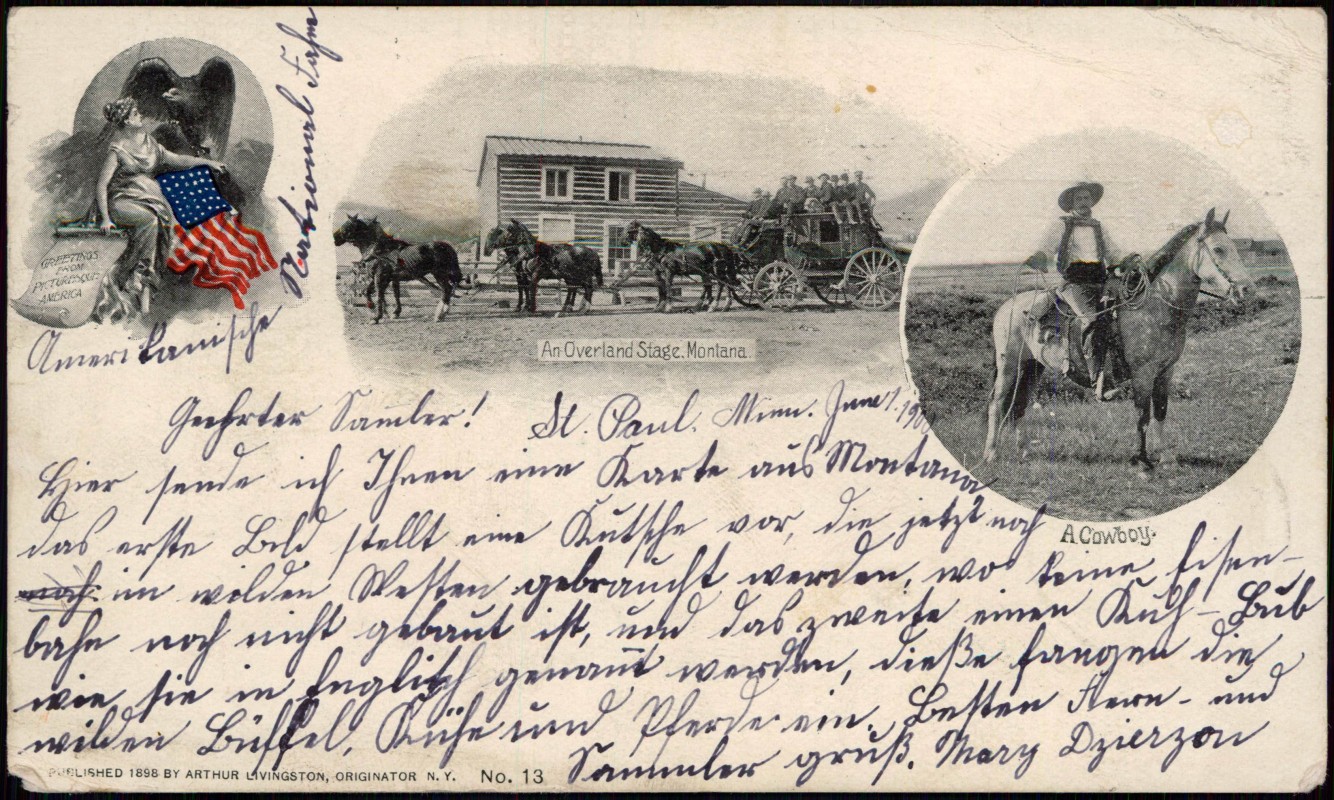 GREETINGS
FROM
PICTURESQUE
AMERICA
Amerikanische National Fahn
An Overland Stage. Montana.
A Cowboy.
Geehrter Samler! St. Paul. Minn. June 1. 1900
Hier sende ich Ihnen eine Karte aus Montana
das erste Bild stellt eine Kutsche vor, die jetzt noch
noch im wilden Westen gebraucht werden, wo keine Eisen-
bahn noch nicht gebaut ist, und das zweite einen Kuh-Bub
wie sie in Englisch genant werden, dieße fangen die
wilden Büffel, Kühe und Pferde ein. Besten Fern- und
Sammler gruß. Mary Dzierzon
PUBLISHED 1898 BY ARTHUR LIVINGSTON, ORIGINATOR N.Y. No. 13